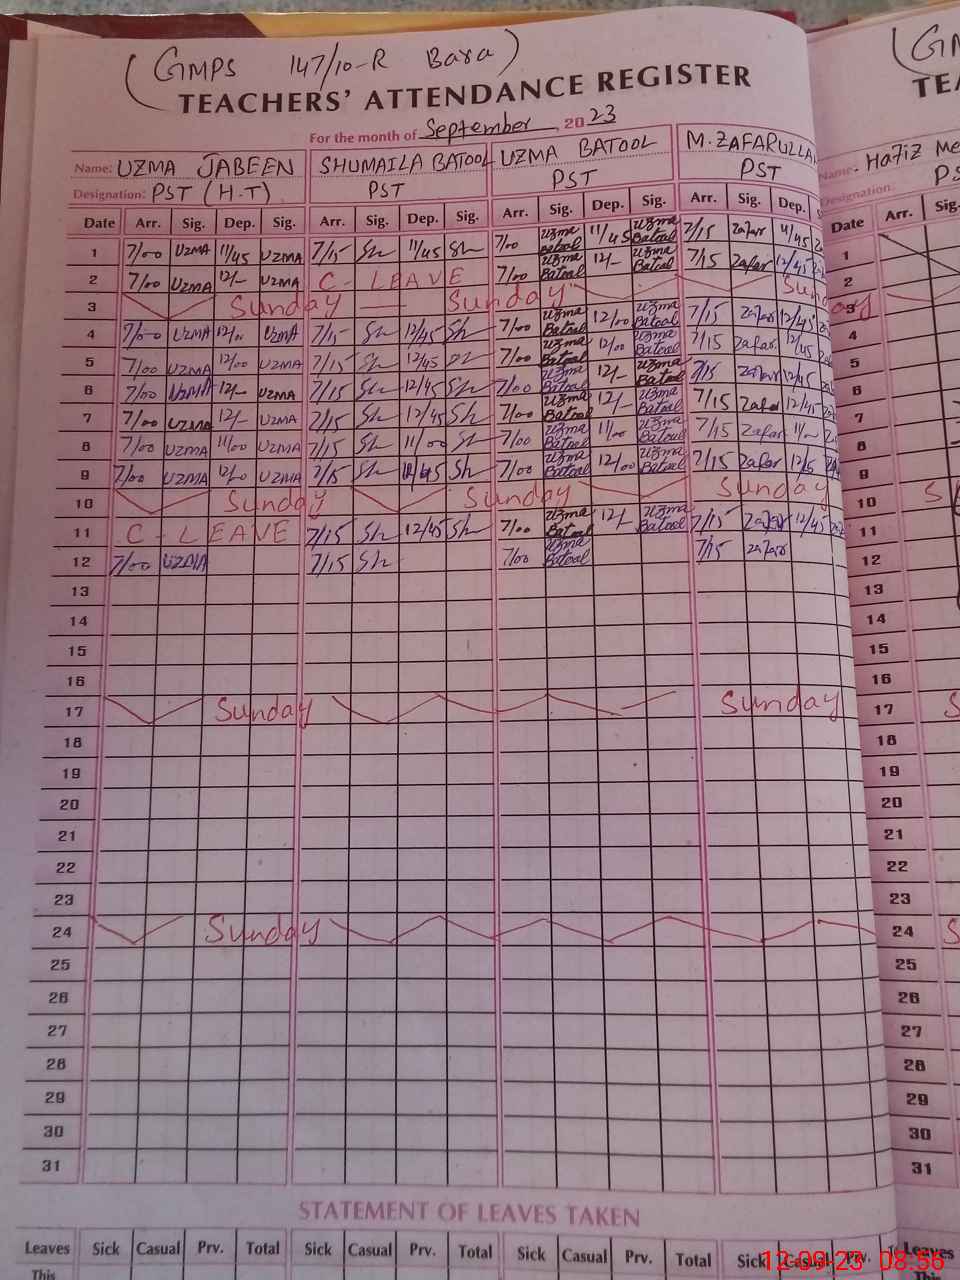 (GMPS 147/10-R Bara)
TEACHERS' ATTENDANCE REGISTER
For the month of September, 2023
Name: UZMA JABEEN SHUMAILA BATOOL UZMA BATOOL M. ZAFARULLAH
Designation: PST (H-T) PST PST PST
Date Arr. Sig. Dep. Sig. Arr. Sig. Dep. Sig. Arr. Sig. Dep. Sig. Arr. Sig. Dep.
1 7/00 UZMA 11/45 UZMA 7/15 Sh 11/45 Sh 7/00 Uzma Batool 11/45 Uzma Batool 7/15 Zafar 11/45
2 7/00 UZMA 12/- UZMA C - LEAVE 7/00 Uzma Batool 12/- Uzma Batool 7/15 Zafar 12/45
3 Sunday Sunday
4 7/00 UZMA 12/00 UZMA 7/15 Sh 12/45 Sh 7/00 Uzma Batool 12/00 Uzma Batool 7/15 Zafar 12/45
5 7/00 UZMA 12/00 UZMA 7/15 Sh 12/45 Sh 7/00 Uzma Batool 12/00 Uzma Batool 7/15 Zafar 12/45
6 7/00 UZMA 12/- UZMA 7/15 Sh 12/45 Sh 7/00 Uzma Batool 12/- Uzma Batool 7/15 Zafar 12/45
7 7/00 UZMA 12/- UZMA 7/15 Sh 12/45 Sh 7/00 Uzma Batool 12/- Uzma Batool 7/15 Zafar 12/45
8 7/00 UZMA 11/00 UZMA 7/15 Sh 11/00 Sh 7/00 Uzma Batool 11/00 Uzma Batool 7/15 Zafar 11/00
9 7/00 UZMA 12/00 UZMA 7/15 Sh 12/45 Sh 7/00 Uzma Batool 12/00 Uzma Batool 7/15 Zafar
10 Sunday Sunday Sunday
11 C - LEAVE 7/15 Sh 12/45 Sh 7/00 Uzma Batool 12/- Uzma Batool 7/15 Zafar 12/45
12 7/00 UZMA 7/15 Sh 7/00 Uzma Batool 7/15 Zafar
13
14
15
16
17 Sunday Sunday
18
19
20
21
22
23
24 Sunday
25
26
27
28
29
30
31
STATEMENT OF LEAVES TAKEN
Leaves Sick Casual Prv. Total Sick Casual Prv. Total Sick Casual Prv. Total Sick Casual Prv.
This
Name: Hafiz
Designation:
Date Arr. Sig.
1
2
3
4
5
6
7
8
9
10
11
12
13
14
15
16
17
18
19
20
21
22
23
24
25
26
27
28
29
30
31
Leaves
12-09-23 08:56